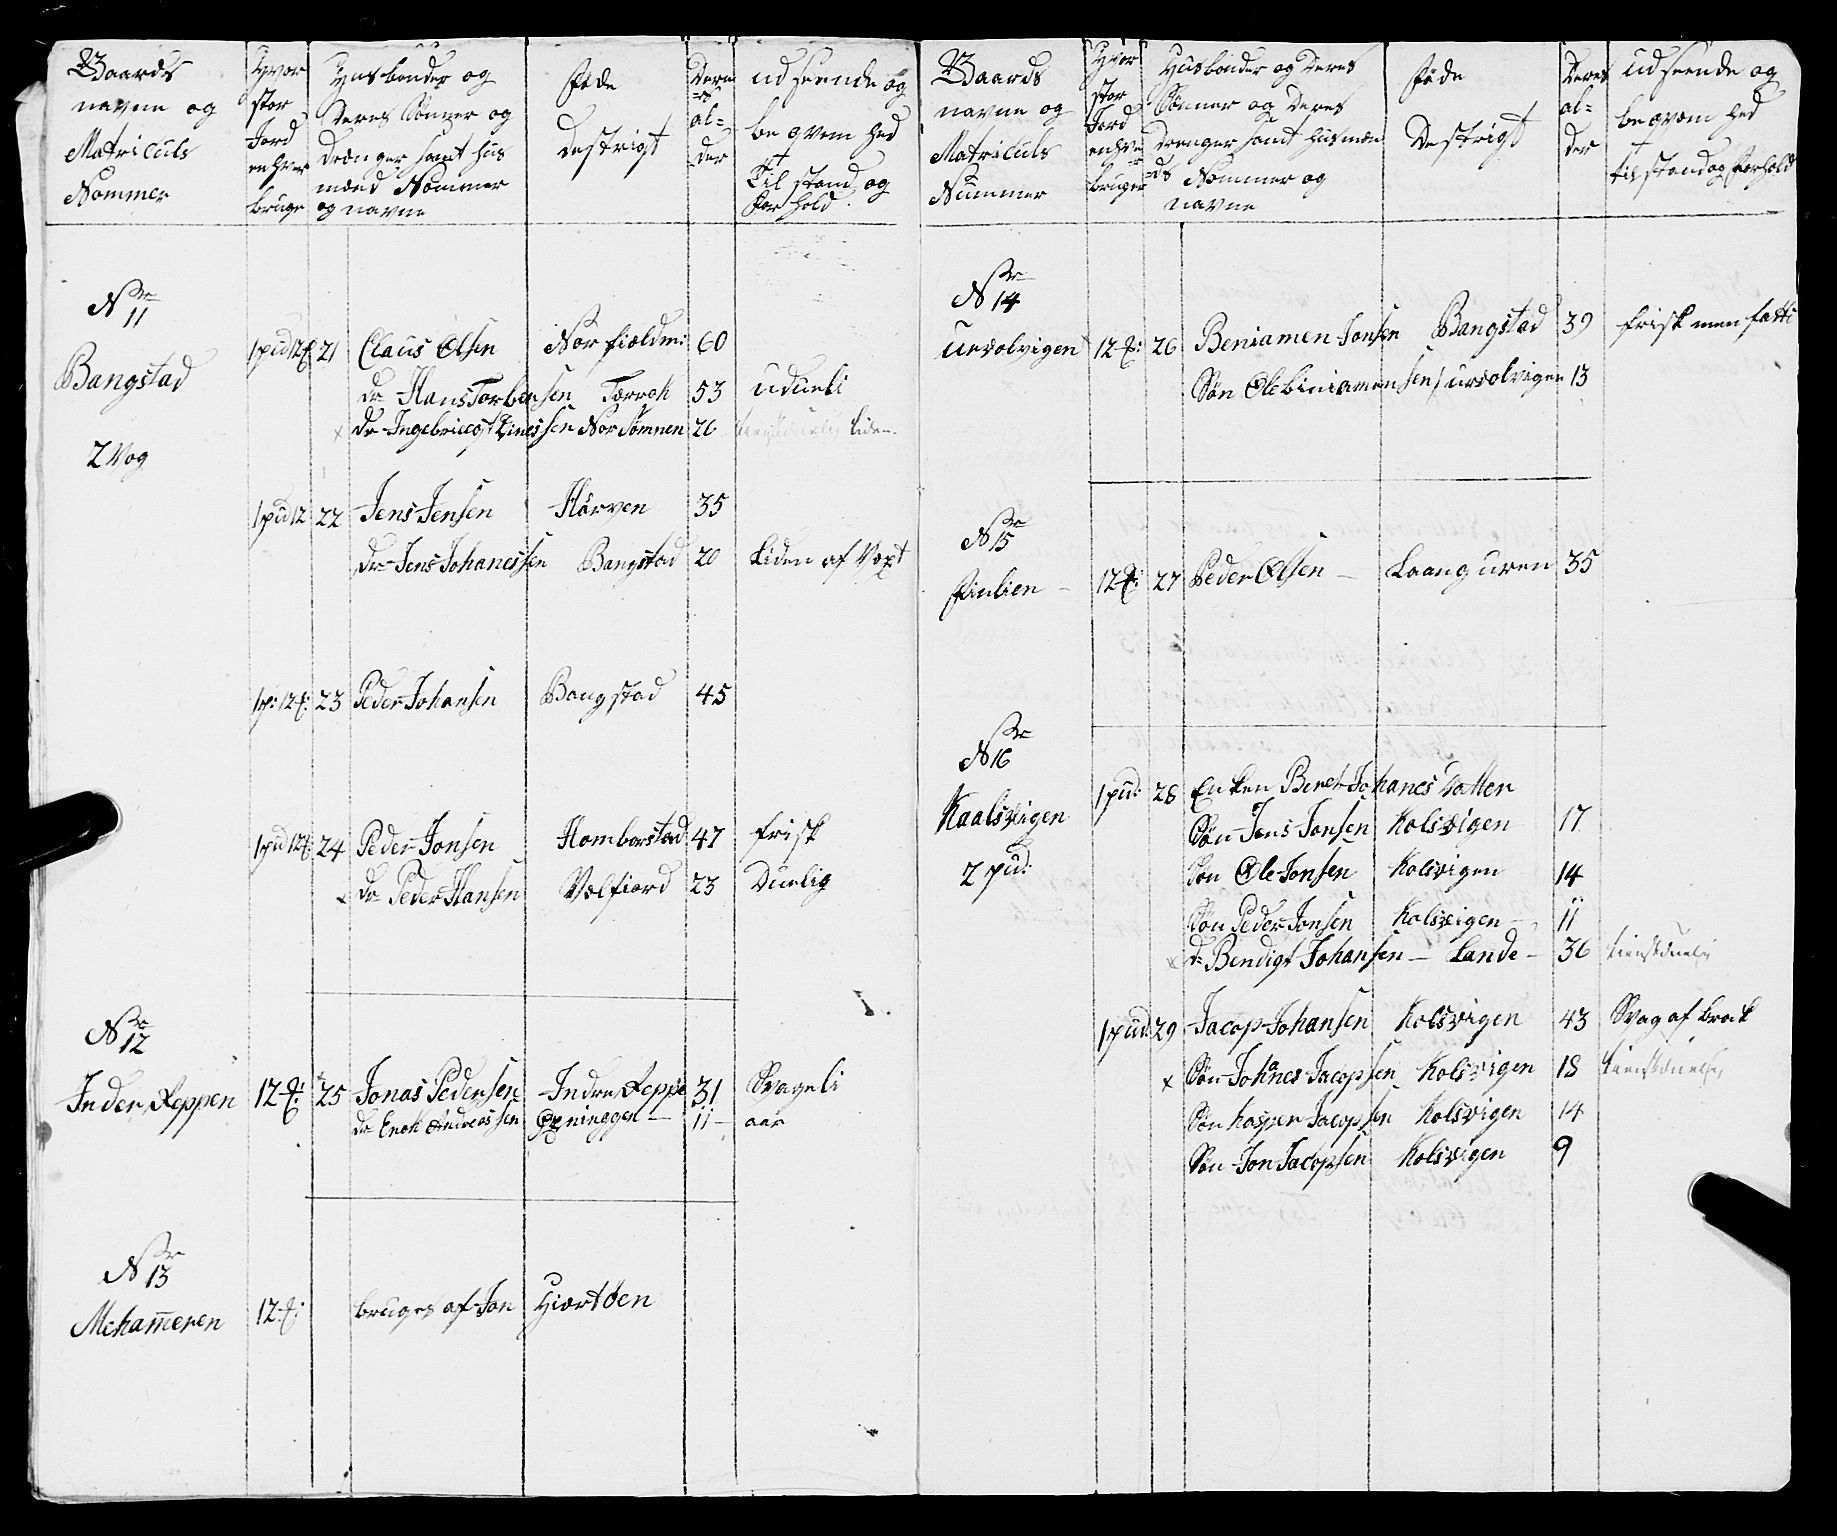 Gaards navne og Matriculs Nommer
Hvor stor Jord enhver bruge
Husbonder og Deres Sönner og Drænger samt Hus mænd Nommer og navne
föde Destrigt
Deres al= der
udseende og beqvem hed Til stand og forhold
No 11
1 pud 12 21 Claus Olsen Nor fieldm: 60
Bangstad
dr Hans Torbensen Torroh 53 udueli
x dr Ingebricgt Sinessen Nor Sømnen 26 liden
2 Vog
1 pud 12 22 Jens Jensen Hörven 35
dr Jens Johanessen Bangstad 20 Liden af Vext
1 p: 12 23 Peder Johansen Bangstad 45
1 pud 12 24 Peder Jonsen Homborstad 47 frisk
x dr Peder Hansen Velfiord 23 Duelig
No 12
Inder Reppen 12 25 Jonas Pedersen Indre Reppe 31 Svageli
dr Enok Andreassen 11 aar
No 13
Mehammeren 12 bruges af Jon Hiortöen
Gaards navne og Matriculs Nummer
Hvor stor Jord enhver bruger
Husbonder og Deres Sönner og Deres Drenger samt Husmæn ds Nommer og navne
föde Destrigt
Deres al= der
udseende og beqvem hed tilstand og forhold
No 14
Urvolvigen 12 26 Beniamen Jonsen Bangstad 39 frisk men fatti
Sön Ole biniamensen urvolvigen 13
No 15
12 27 Peder Olsen Laanguren 35
No 16
Kaalsvigen 1 pud: 28 Enken Beret Johanes Datter
Sön Jens Jonsen Kolsvigen 17
2 pud:
Sön Ole Jonsen Kolsvigen 14
Sön Peder Jonsen Kolsvigen 11
x dr Bendigt Johansen Lande 36 tienstduelig
1 pud 29 Jacop Johansen Kolsvigen 43 Svag af brok
x Sön Johannes Jacopsen Kolsvigen 18 tienstduelig
Sön Kasper Jacopsen Kolsvigen 14
Sön Jon Jacopsen Kolsvigen 9